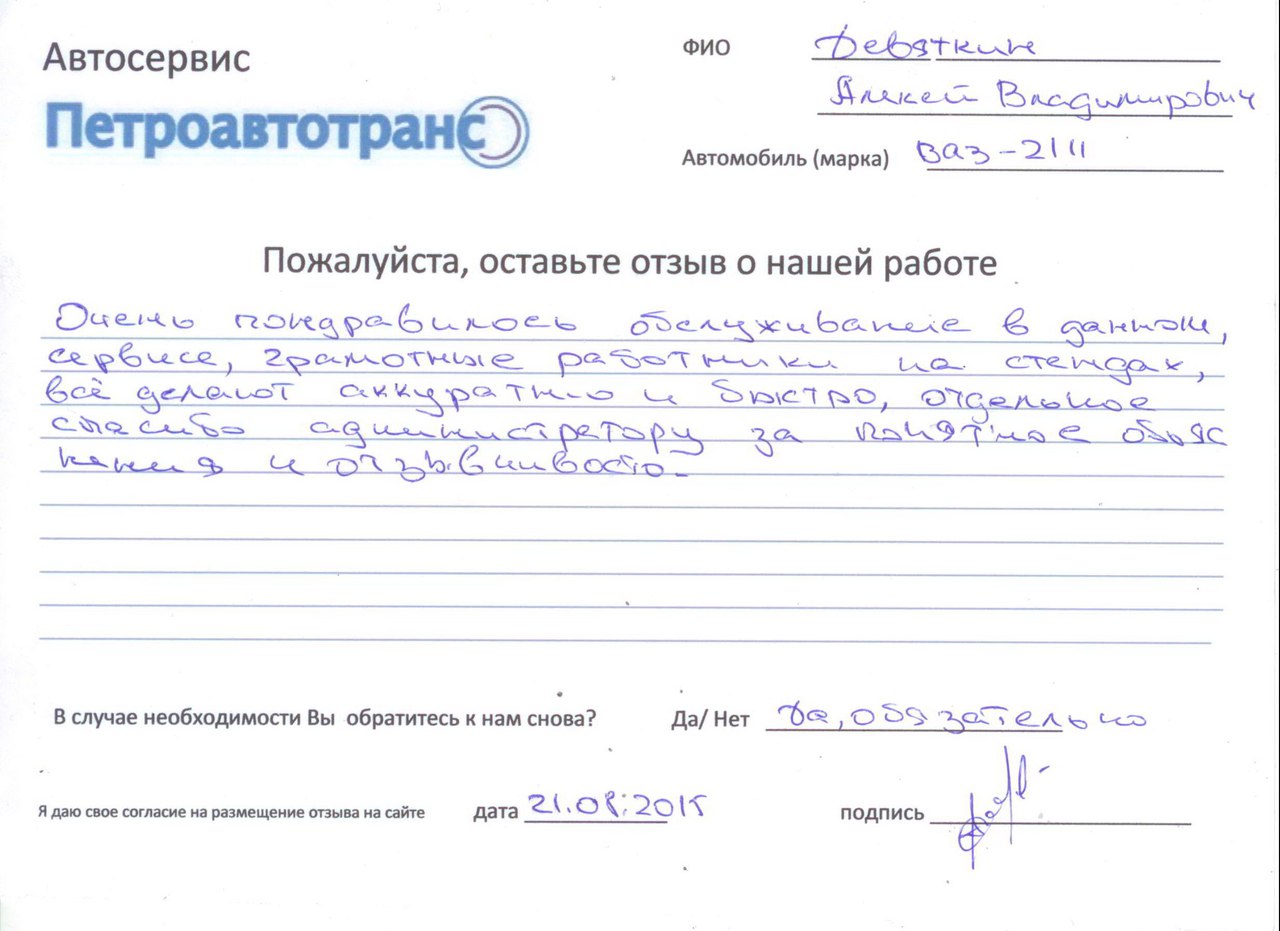 Автосервис
Петроавтотранс
ФИО Девяткин
Алексей Владимирович
Автомобиль (марка) ВАЗ-2111
Пожалуйста, оставьте отзыв о нашей работе
Очень пондравилось обслуживание в данном,
сервисе, грамотные работники на стендах,
всё делают аккуратно и быстро, отдельное
спасибо администратору за понятное объяс
нения и отзывчивость.
В случае необходимости Вы обратитесь к нам снова? Да/ Нет Да, обязательно
Я даю свое согласие на размещение отзыва на сайте дата 21.08.2015 подпись